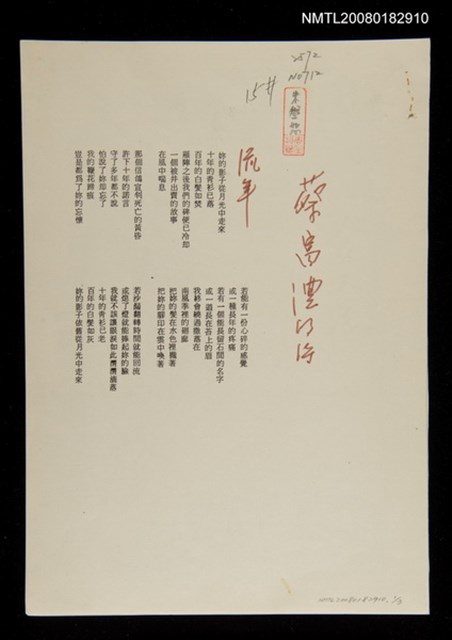 NMTL20080182910
2572
NO712
15#
蔡富澧的詩
流年
妳的影子從月光中走來
十年的青衫已舊
百年的白髮如焚
雁陣之後我們的碑便已冷卻
一個被井出賣的故事
在風中喘息
那個信鴿宣判死亡的黃昏
許下十年的諾言
守了多年都不說
怕說了妳卻忘了
我的鞭花蹄痕
豈是都為了妳的忘懷
若能有一份心碎的感覺
成一種長年的疼痛
若有一個能長留石間的名字
成一道長在苔上的眉
我終會繞過雒嘉在
南風季裡的迴廊
把妳的髮在水色裡攏著
把妳的腳印在雲中喚著
若沙漏翻轉時間就能回流
成熄了燈就能捧起妳的臉
我就不該讓眼淚如此潸潸
十年的青衫已老
百年的白髮如灰
妳的影子依舊從月光中走來
NMTL20080182910, 1/3